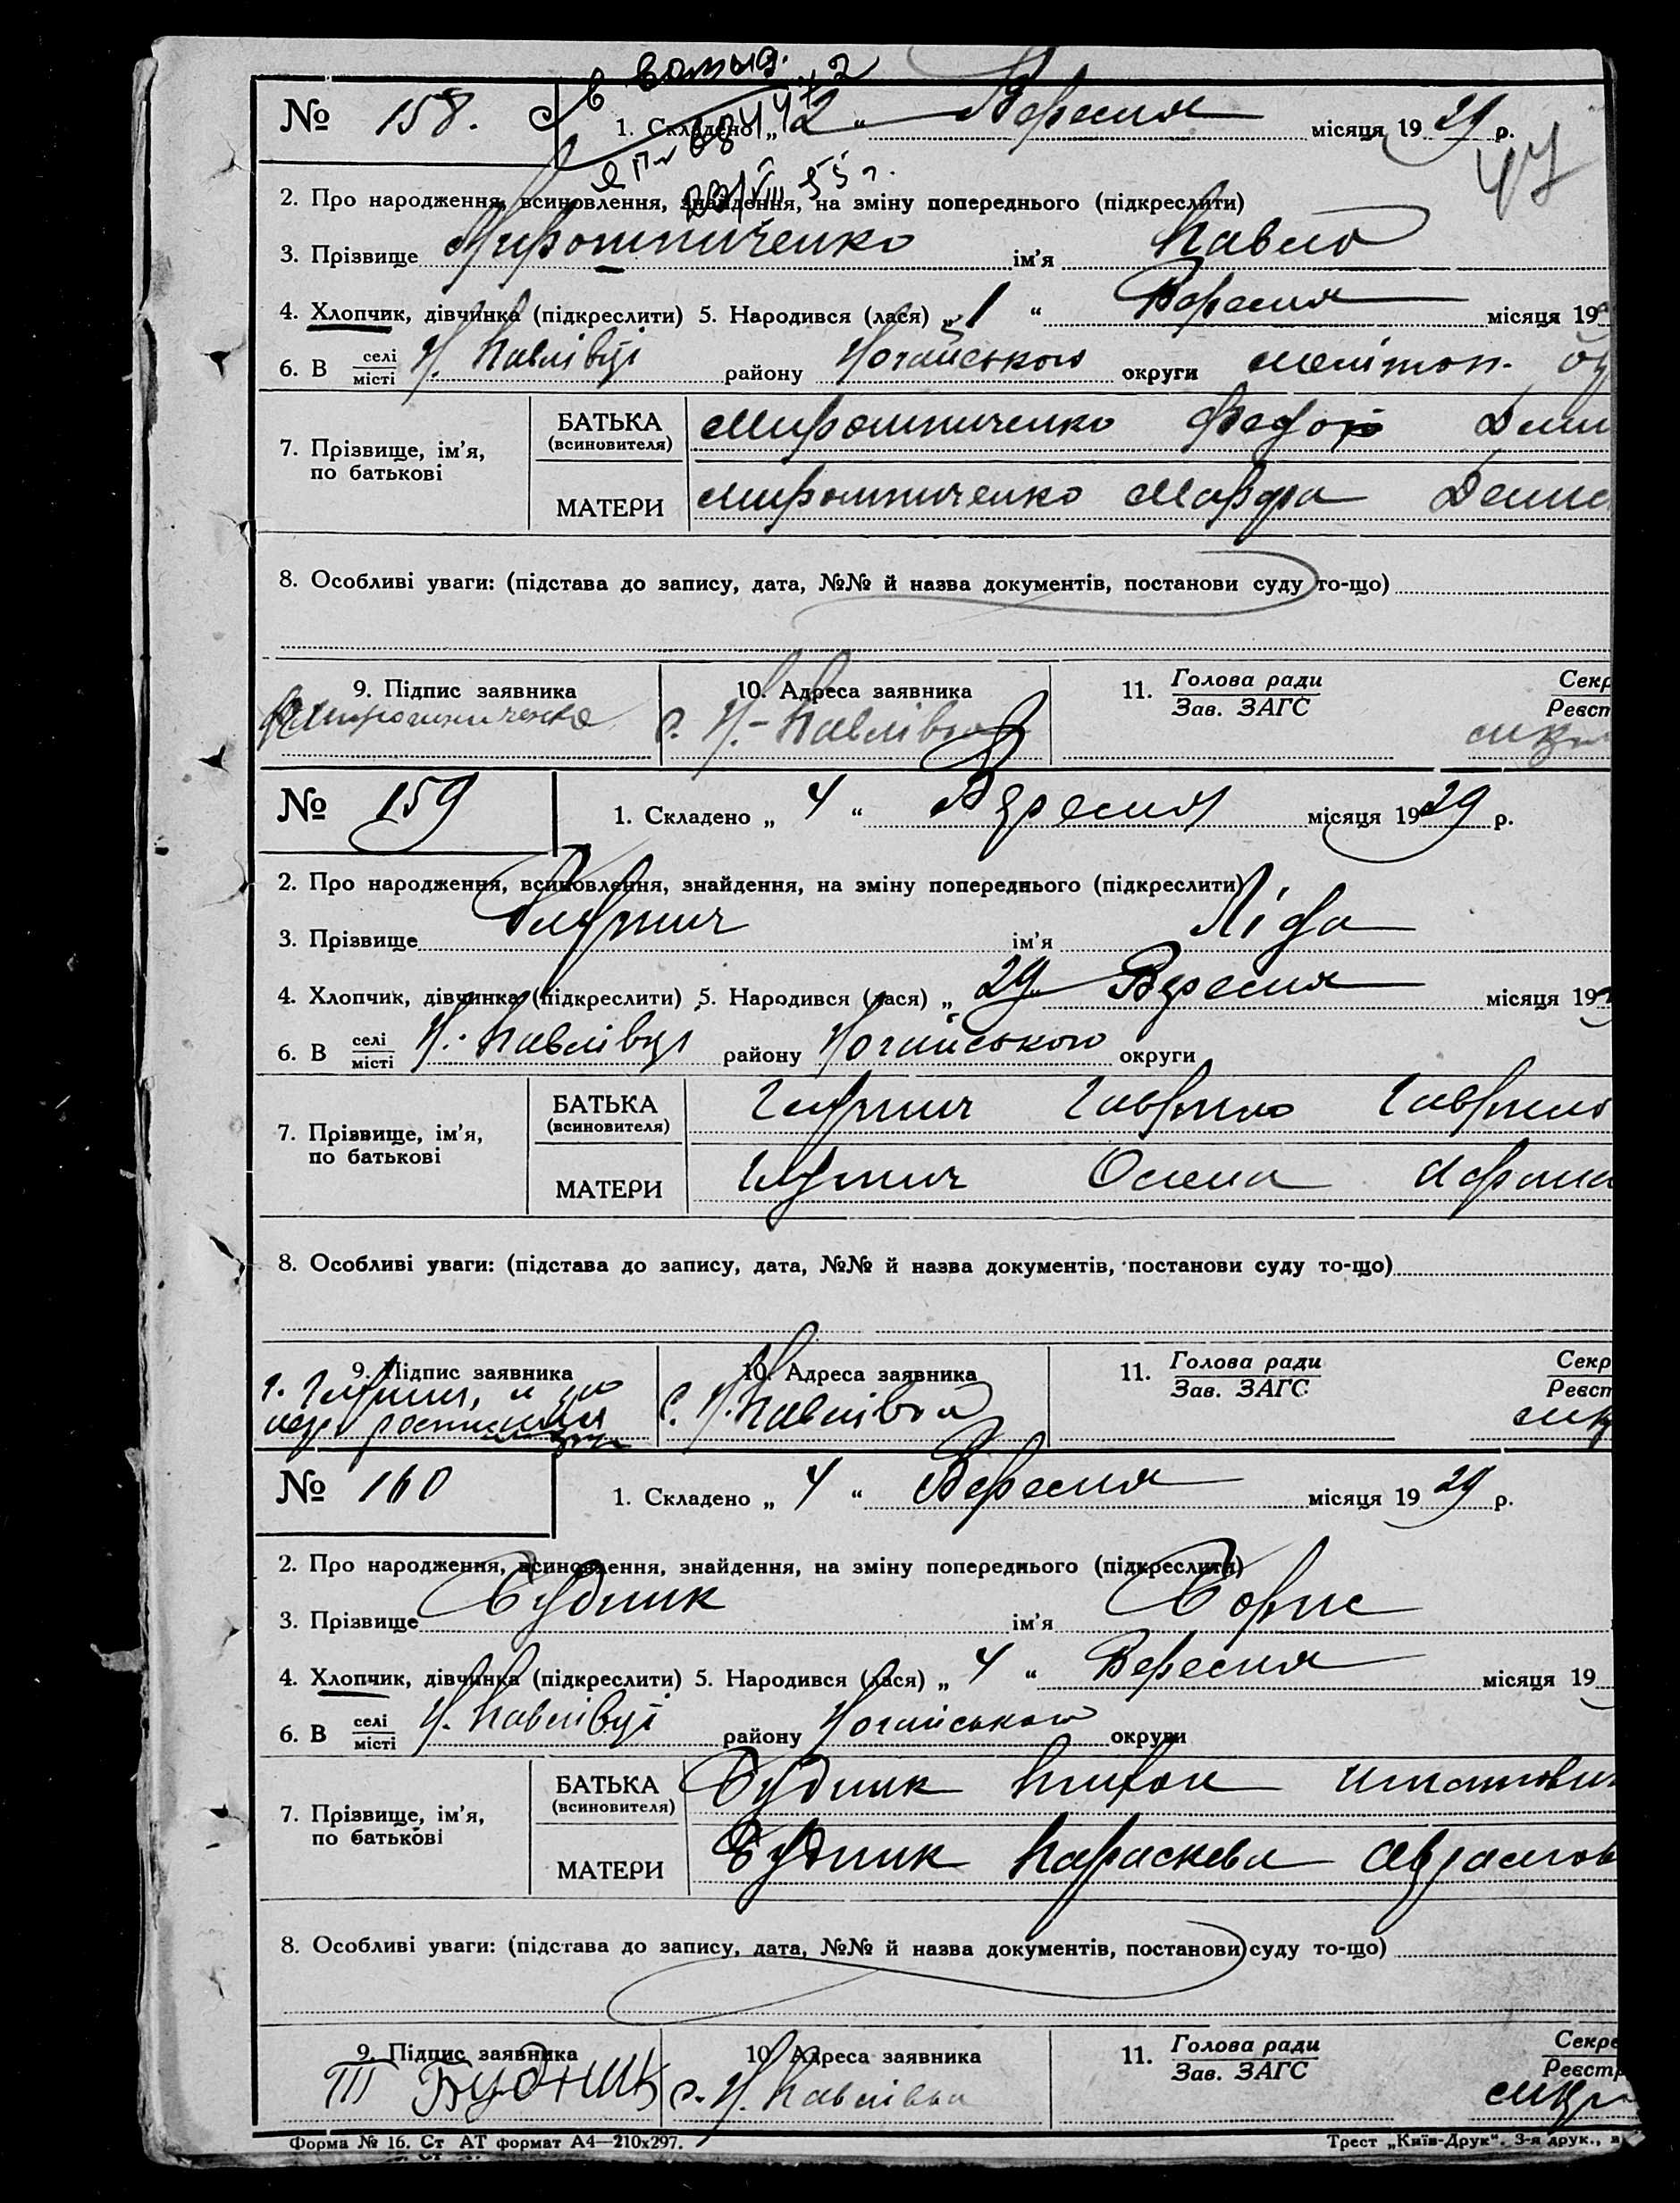 № 158. 1. Складено „ 2 “ Вересня місяця 19 29 р.
47
2. Про народження, всиновлення, знайдення, на зміну попереднього (підкреслити)
3. Прізвище Мирошниченко ім’я Павло
4. Хлопчик, дівчинка (підкреслити) 5. Народився (лася) „ 1 “ Вересня місяця 19
6. В селі місті Н. Павлівці району Ногайського округи Мелітоп.
7. Прізвище, ім’я, по батькові
БАТЬКА (всиновителя) Мирошниченко Федор
МАТЕРИ Мирошниченко Марфа
8. Особливі уваги: (підстава до запису, дата, №№ й назва документів, постанови суду то-що)
9. Підпис заявника 10. Адреса заявника 11. Голова ради Зав. ЗАГС Секр Реєст
Мирошниченко с. Н.-Павлівка
№ 159 1. Складено „ 4 “ Вересня місяця 19 29 р.
2. Про народження, всиновлення, знайдення, на зміну попереднього (підкреслити)
3. Прізвище ім’я Ліда
4. Хлопчик, дівчинка (підкреслити) 5. Народився (лася) „ 29 “ Вересня місяця 19
6. В селі місті Н. Павлівці району Ногайського округи
7. Прізвище, ім’я, по батькові
БАТЬКА (всиновителя) Гаврило Гаврило
МАТЕРИ Олена
8. Особливі уваги: (підстава до запису, дата, №№ й назва документів, постанови суду то-що)
9. Підпис заявника 10. Адреса заявника 11. Голова ради Зав. ЗАГС Секр Реєст
с. Н. Павлівка
№ 160 1. Складено „ 4 “ Вересня місяця 19 29 р.
2. Про народження, всиновлення, знайдення, на зміну попереднього (підкреслити)
3. Прізвище Будник ім’я Борис
4. Хлопчик, дівчинка (підкреслити) 5. Народився (лася) „ 4 “ Вересня місяця 19
6. В селі місті Н. Павлівці району Ногайського округи
7. Прізвище, ім’я, по батькові
БАТЬКА (всиновителя) Будник Тихон
МАТЕРИ Будник Параскева
8. Особливі уваги: (підстава до запису, дата, №№ й назва документів, постанови суду то-що)
9. Підпис заявника 10. Адреса заявника 11. Голова ради Зав. ЗАГС Секре Реєстр
Т Будник с. Н. Павлівка
Форма № 16. Ст АТ формат А4—210х297. Трест „Київ-Друк“. 3-я друк.,